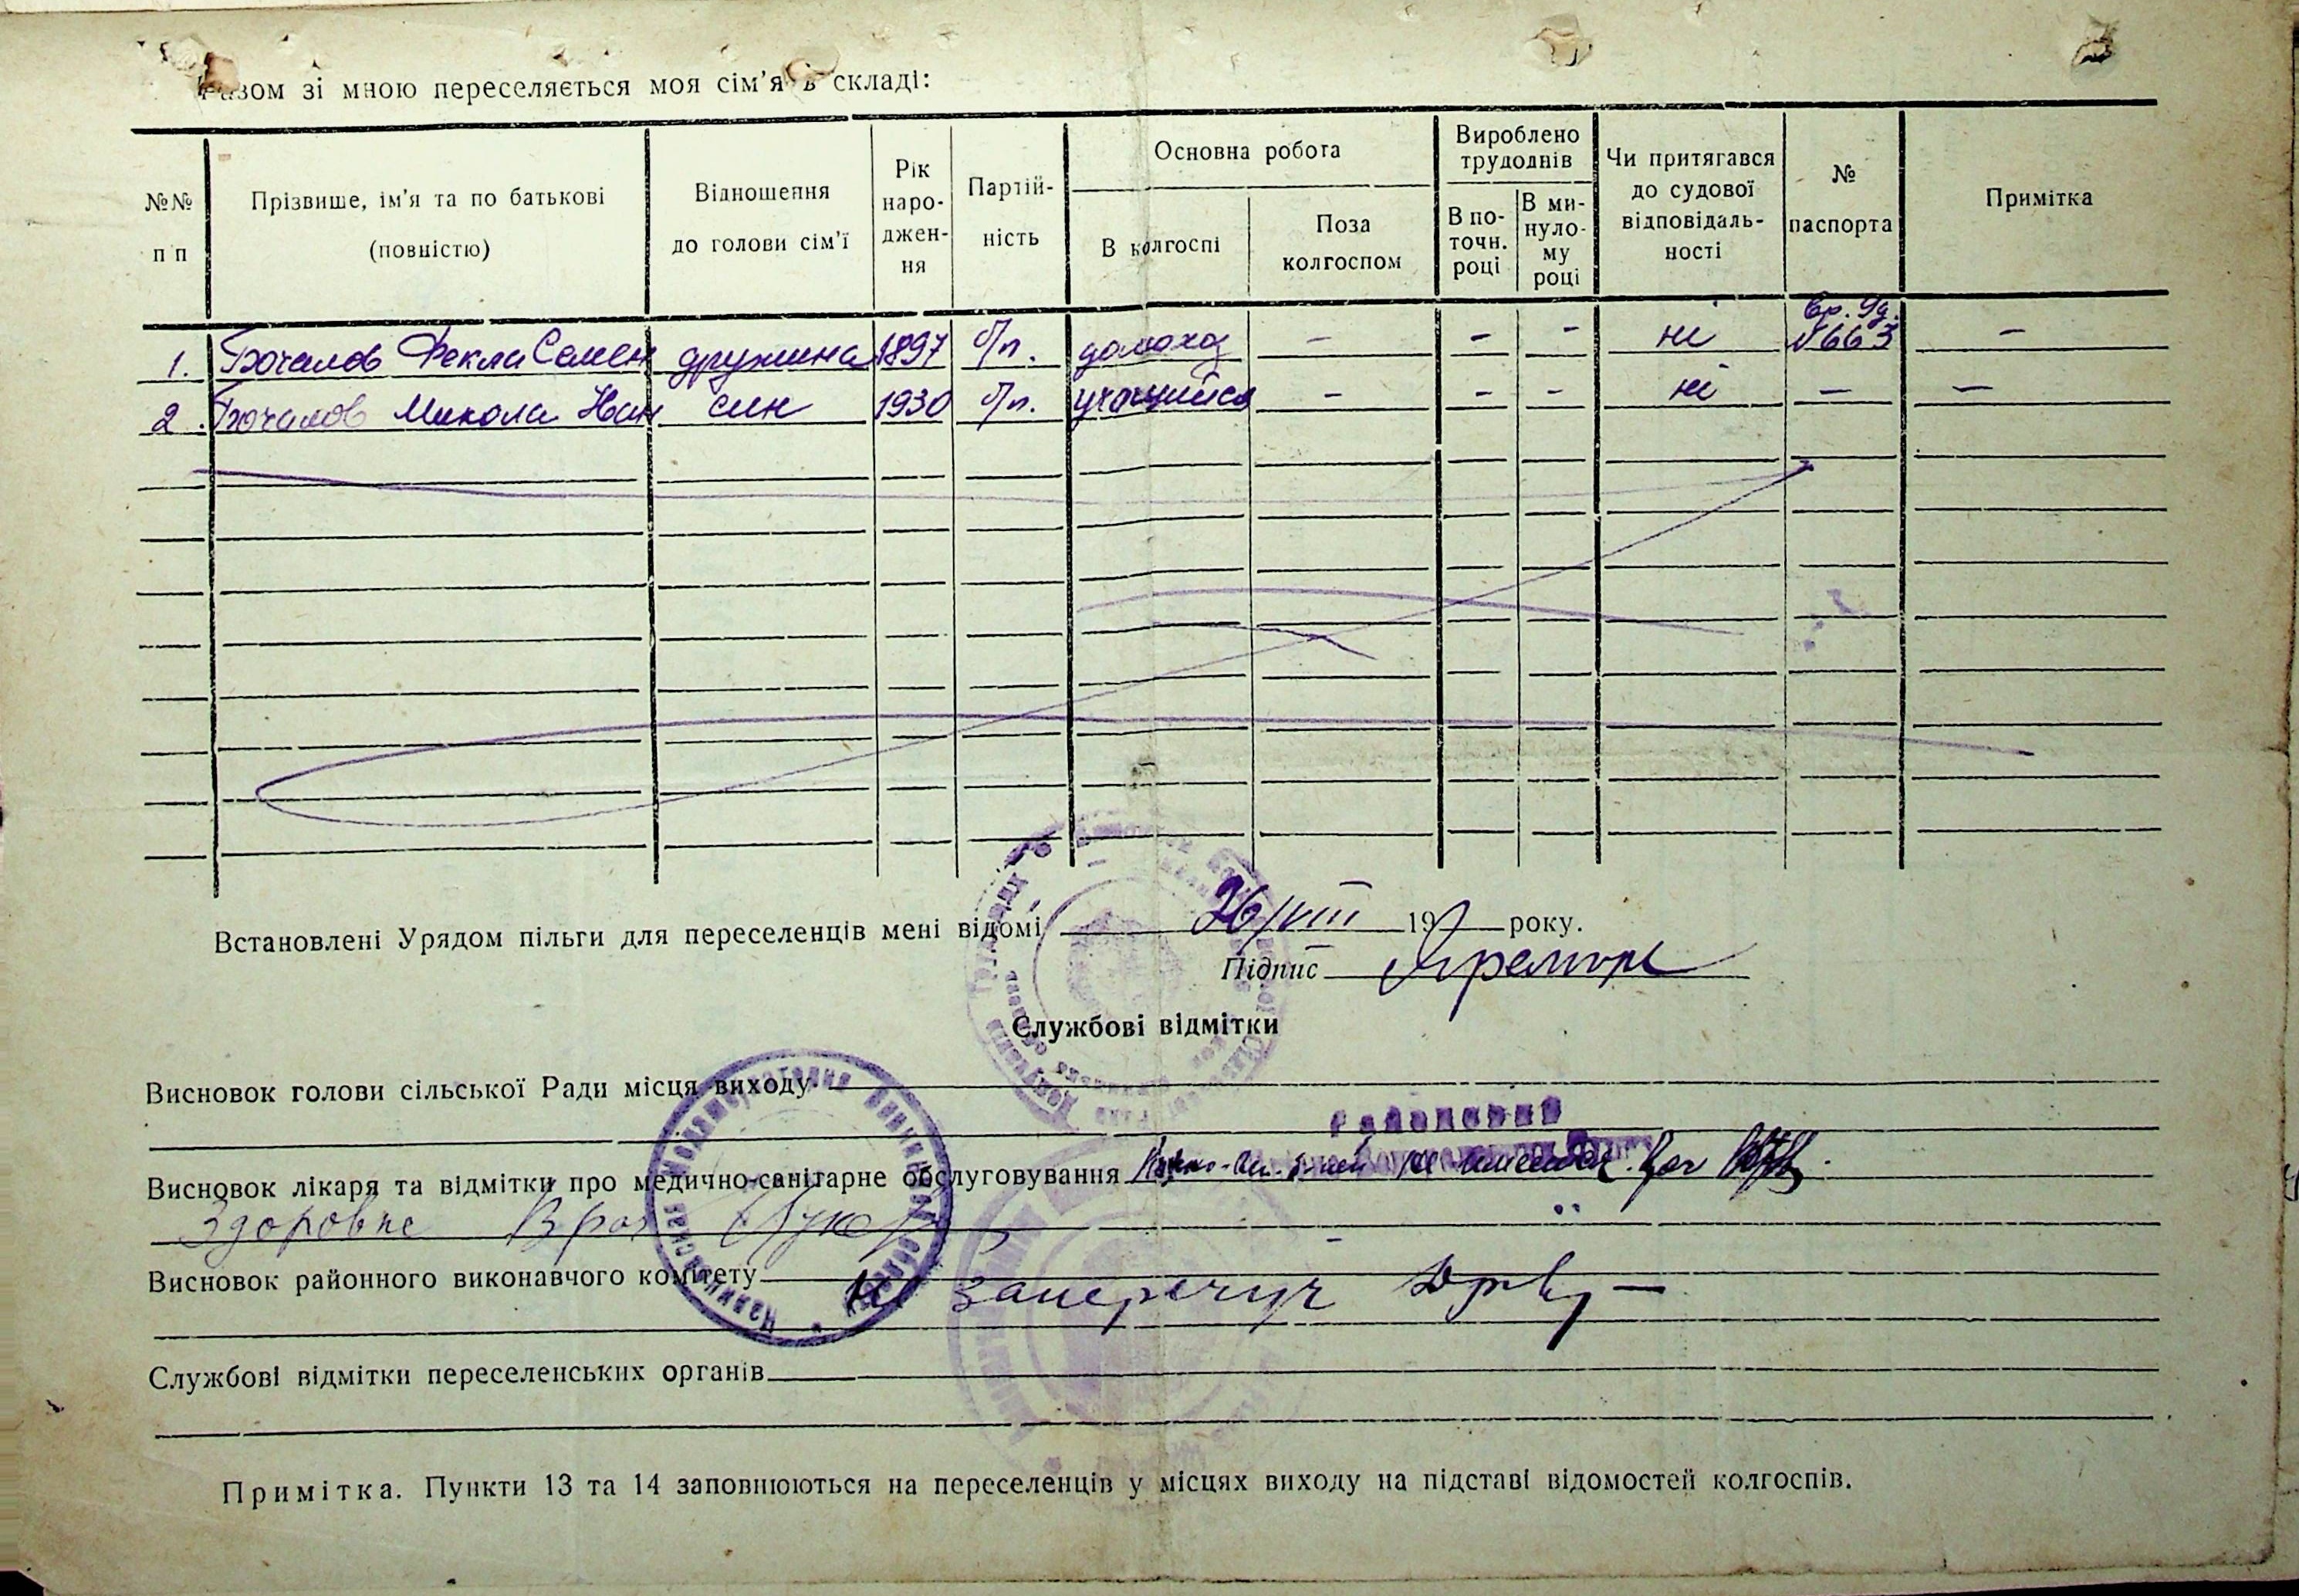 Разом зі мною переселяється моя сім'я в складі:
№№ п п
Прізвище, ім'я та по батькові (повністю)
Відношення до голови сім'ї
Рік народжен-ня
Партій-ність
Основна робота
В колгоспі
Поза колгоспом
Вироблено трудоднів
В по-точн. році
В ми-нуло-му році
Чи притягався до судової відповідаль-ності
№ паспорта
Примітка
1. Бочалов Фекла Семен дружина 1897 б/п. домохоз — — — ні Вр. Уд. №663 —
2. Бочалов Микола Иван син 1930 б/п. учащийся — — — ні — —
Встановлені Урядом пільги для переселенців мені відомі 26/VIII 19 року.
Підпис
Службові відмітки
Висновок голови сільської Ради місця виходу
Районний
Висновок лікаря та відмітки про медично-санітарне обслуговування
Здоровые Врач
Висновок районного виконавчого комітету не заперечує
Службові відмітки переселенських органів
Примітка. Пункти 13 та 14 заповнюються на переселенців у місцях виходу на підставі відомостей колгоспів.